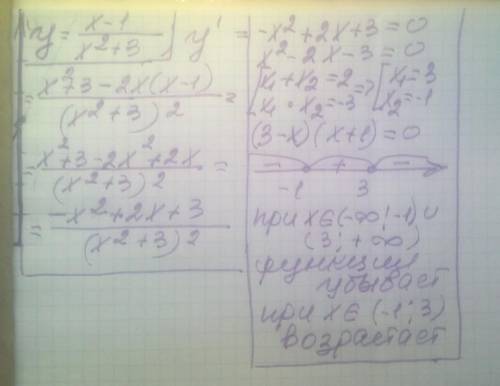 y = x-1 / x²+3, y' =
= x²+3-2x(x-1) / (x²+3)² =
= x²+3-2x²+2x / (x²+3)² =
= -x²+2x+3 / (x²+3)²
-x²+2x+3=0
x²-2x-3=0
x₁+x₂=2 => x₁=3
x₁·x₂=-3 x₂=-1
(3-x)(x+1)=0
- + -
-1 3
при x∈(-∞;-1)∪
(3;+∞)
функция
убывает
при x∈(-1;3)
возрастает